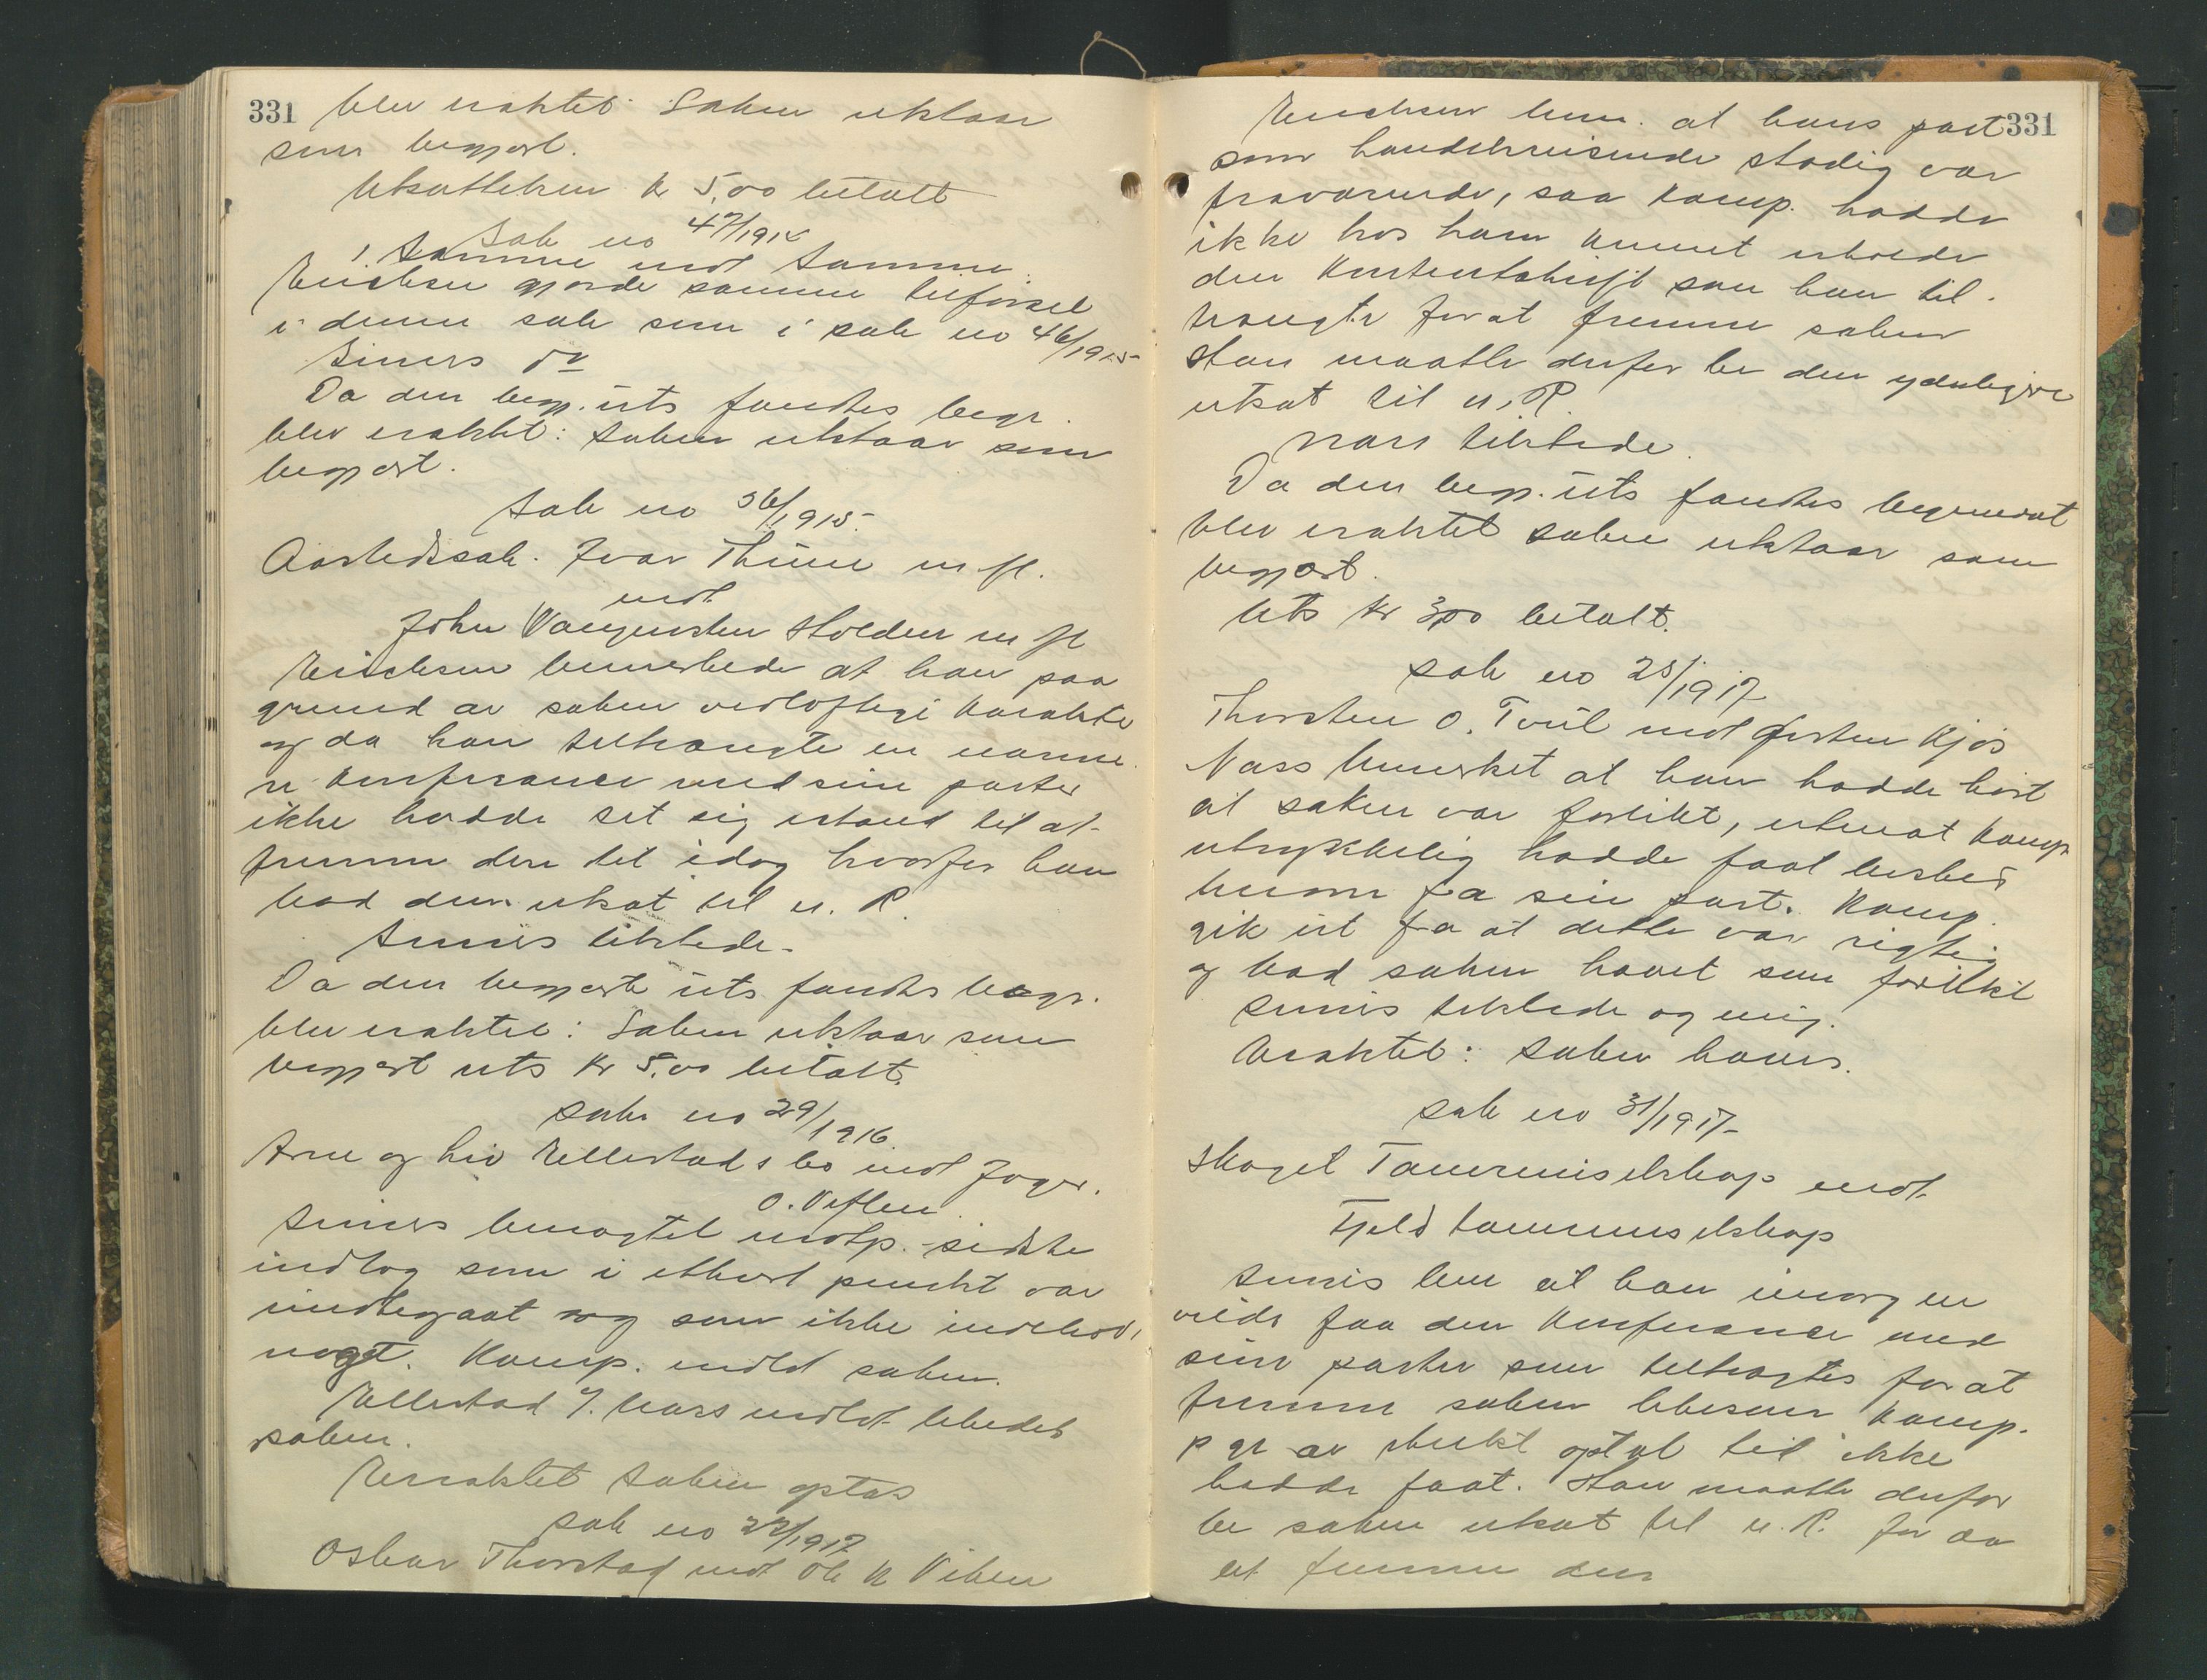 331 blev eraktet: Saken utstaar
som begjært.
Utsættelsen Kr 5,00 betalt
Sak no 47/1915
Samme mot Samme.
Erichsen gjorde samme tilførsel
i denne sak som i sak no 46/1915
Siness do
Da den begj. uts fandtes begr.
blev eraktet: Saken utstaar som
begjært.
Sak no 56/1915.
Aastedssak. Ivar Thune m fl.
mot
John Vangensten Holden m fl
Erichsen bemerkede at han paa
grund av saken vidløftige karakter
og da han tiltrængte en nærme
re konferance med sine parter
ikke hadde set sig istand til at
fremme den til idag hvorfor han
bad den utsat til n. R.
tilstede.
Da den begjærte uts fandtes begr.
blev eraktet: Saken utstaar som
begjært uts Kr 5,00 betalt.
Sak no 29/1916
Arne og Liv Ellestads bo mot Jøger
O. Veflen
benegtet motp. sidste
indlæg som i ethvert punkt var
imøtegaat og som ikke indeholdt
noget. Komp. indlot saken.
Ellestad v. Næss indlot likedes
saken.
Eraktet Saken optas
Sak no 22/1917
Oskar Thorstad mot Ole K Viken
331
Erichsen bem. at hans part
som handelsreisende stadig var
fraværende, saa komp. hadde
ikke hos ham kunnet erholde
den kontrabkrift som han til-
trængte for at fremme saken
Han maatte derfor be den yderligere
utsat til n. R.
Næss tilstede.
Da den begj. uts fandtes begrundet
blev eraktet saken utstaar som
begjært.
Uts Kr 3,00 betalt.
Sak no 28/1917
Thorsten O. Tveit mot Østen Kjøs
Næss bemerket at han hadde hørt
at saken var forlikt, uten at komp.
utrykkelig hadde faat besked
herom fra sin part. Komp.
gik ut fra at dette var rigtig
og bad saken hævet som forlikt
tilstede og enig.
Eraktet: Saken hæves.
Sak no 31/1917
Skoget Tømmerselskap mot
Fjeld tømmerselskap
bem at han imorgen
vilde faa den konferance med
sine parter som tiltrængtes for at
fremme saken likesom komp.
p gr av sterkt optat tid ikke
hadde faat. Han maatte derfor
be saken utsat til n. R. for da
at fremme den